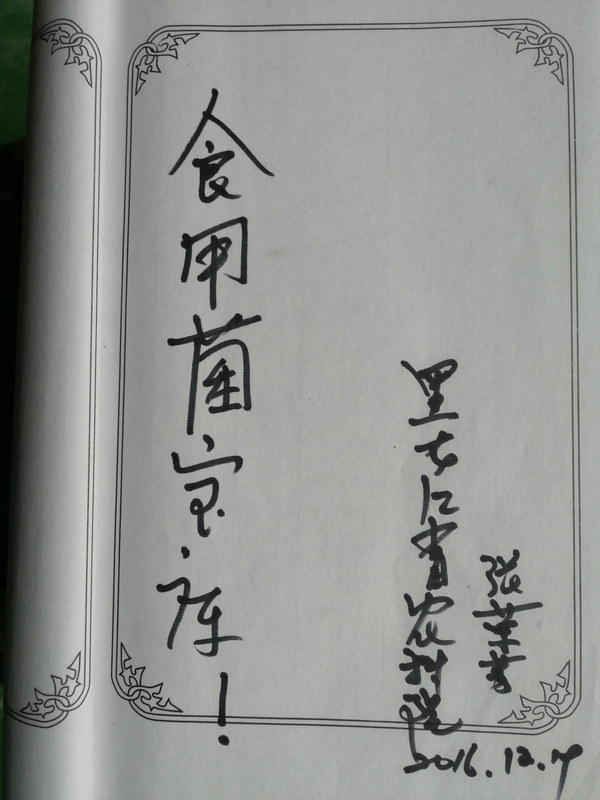 食用菌宝库！
黑龙江省农科院
张
2016.12.